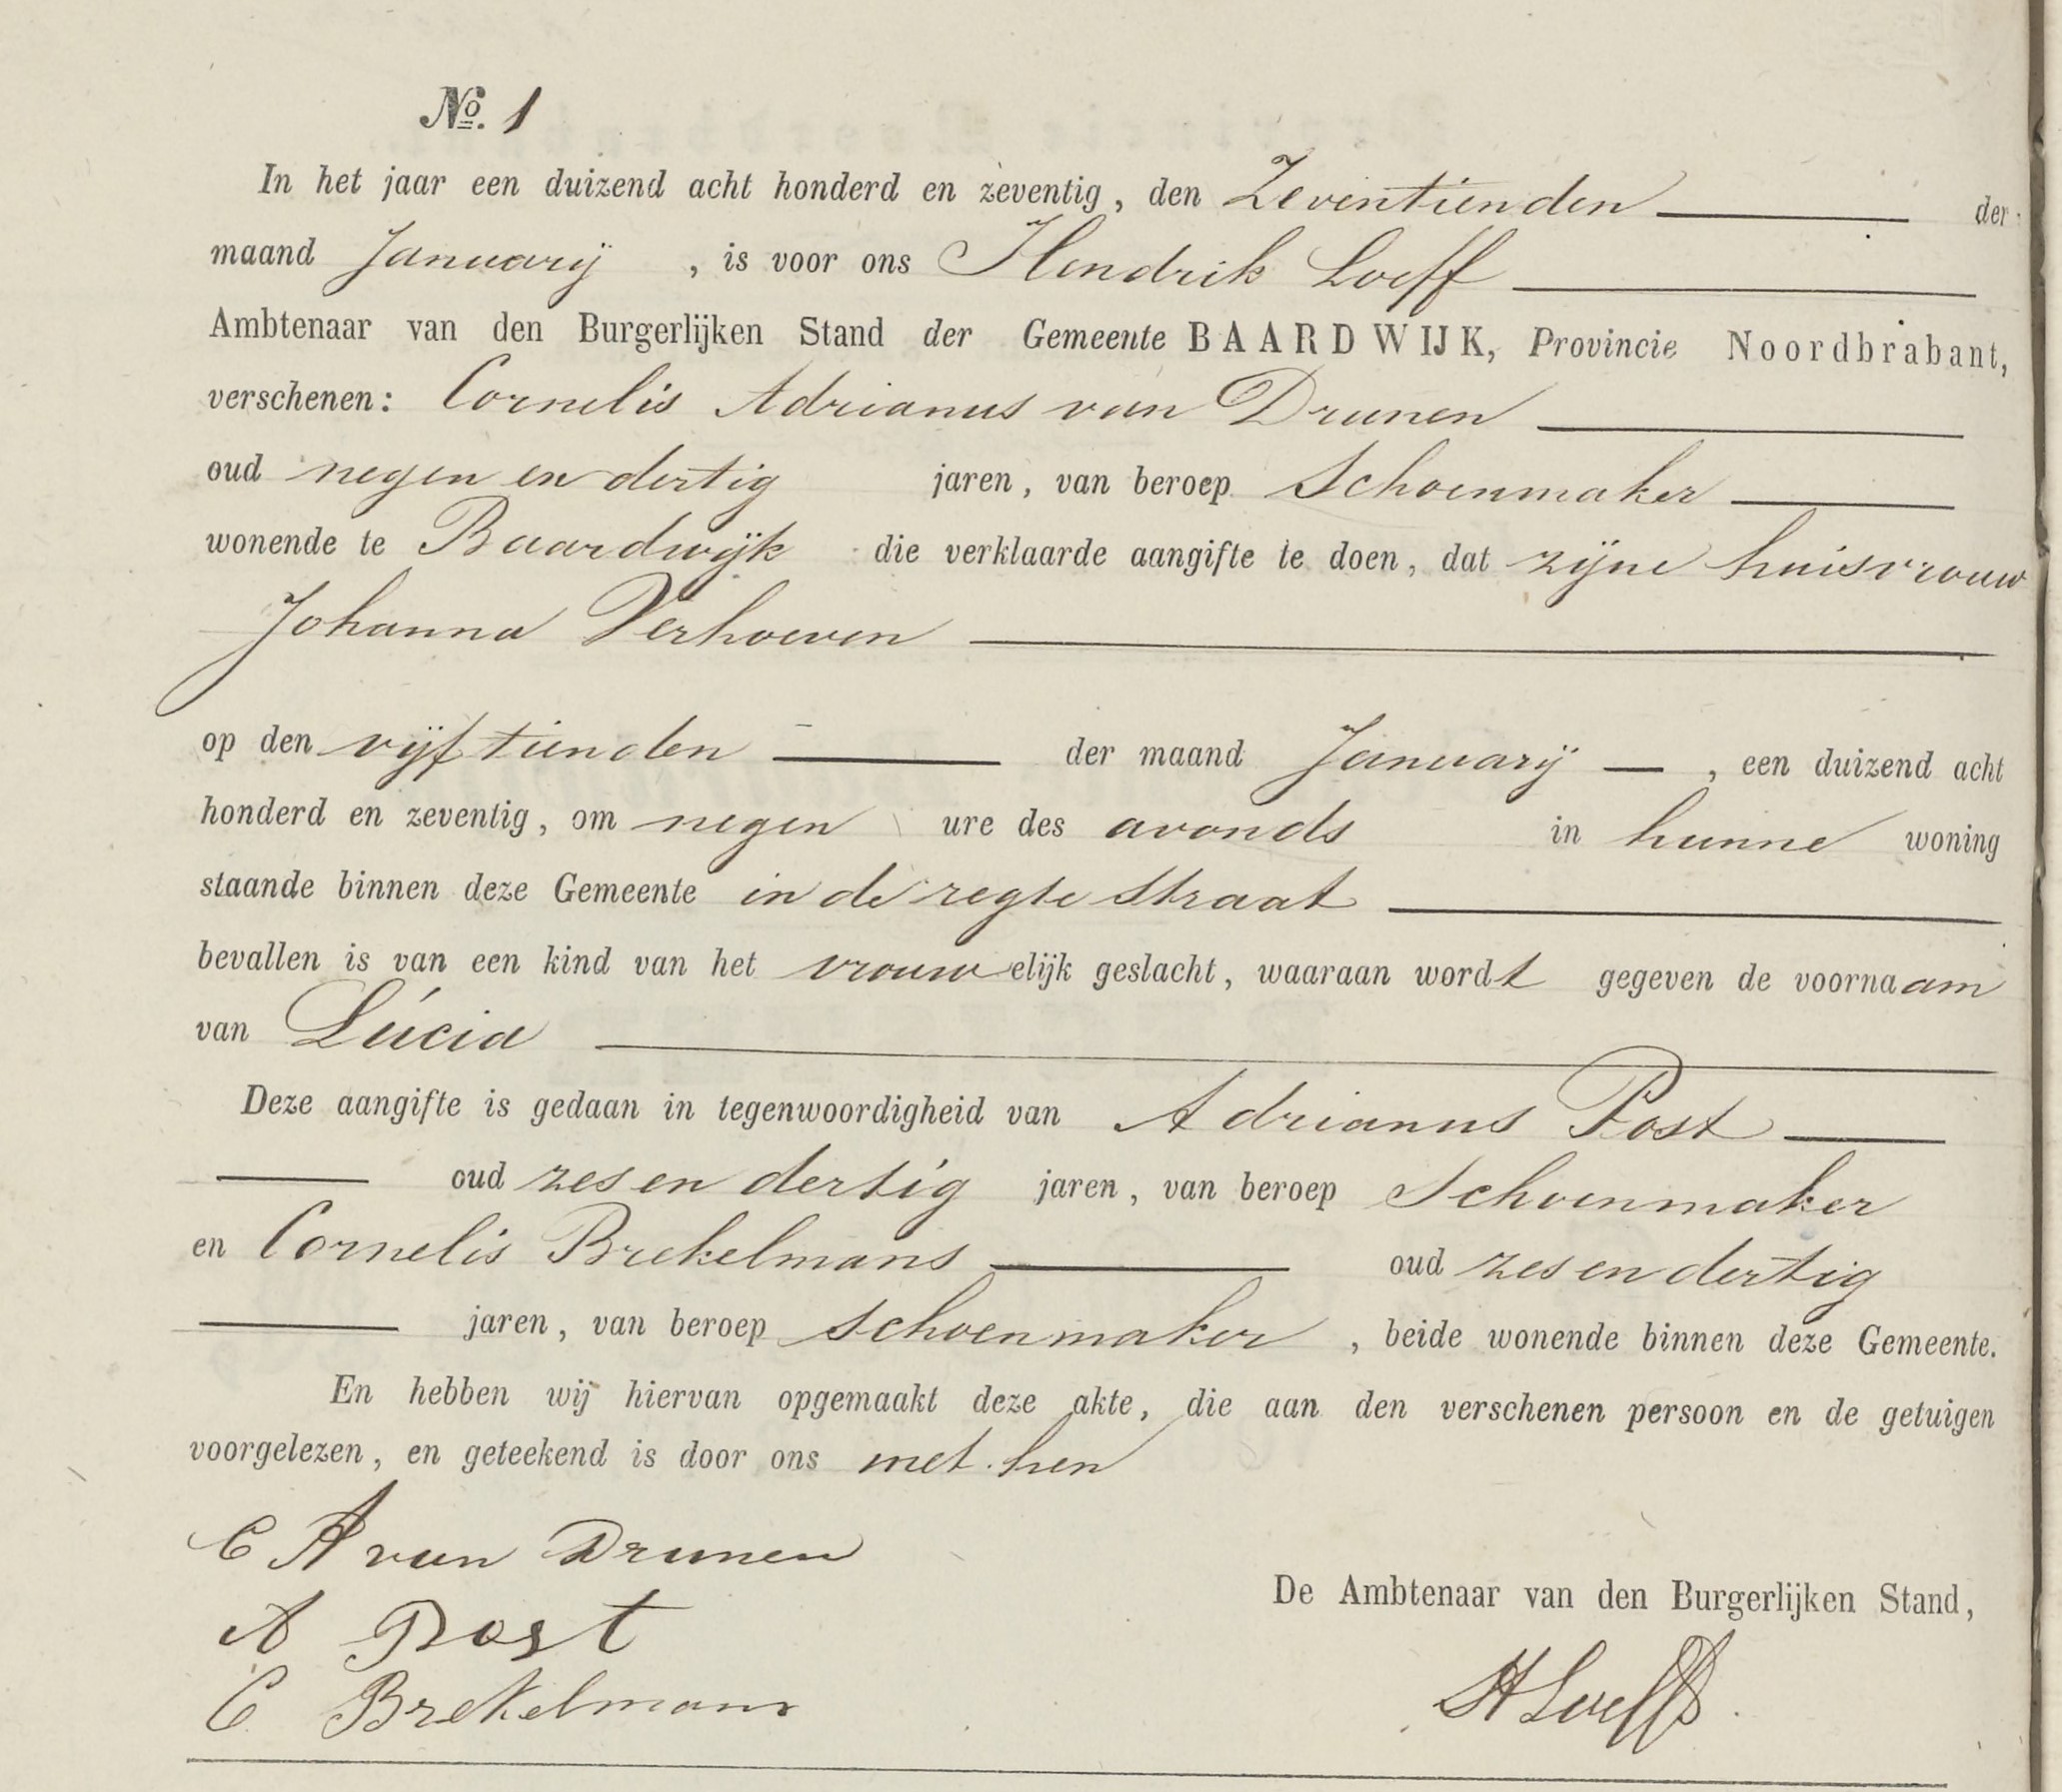 No. 1
In het jaar een duizend acht honderd en zeventig, den Zeventienden der
maand Januarij , is voor ons Hendrik Loeff
Ambtenaar van den Burgerlijken Stand der Gemeente BAARDWIJK, Provincie Noordbrabant,
verschenen: Cornelis Adrianus van Drunen
oud negen en dertig jaren, van beroep Schoenmaker
wonende te Baardwijk die verklaarde aangifte te doen, dat zijne huisvrouw
Johanna Verhoeven
op den vijftienden der maand Januarij , een duizend acht
honderd en zeventig, om negen ure des avonds in hunne woning
staande binnen deze Gemeente in de regte Straat
bevallen is van een kind van het vrouwelijk geslacht, waaraan wordt gegeven de voornaam
van Lúcia
Deze aangifte is gedaan in tegenwoordigheid van Adrianus Post
oud zes en dertig jaren, van beroep Schoenmaker
en Cornelis Brekelmans oud zes en dertig
jaren, van beroep schoenmaker , beide wonende binnen deze Gemeente.
En hebben wij hiervan opgemaakt deze akte, die aan den verschenen persoon en de getuigen
voorgelezen, en geteekend is door ons met hen
C A van Drunen
A Post
De Ambtenaar van den Burgerlijken Stand,
C Brekelmans
H Loeff